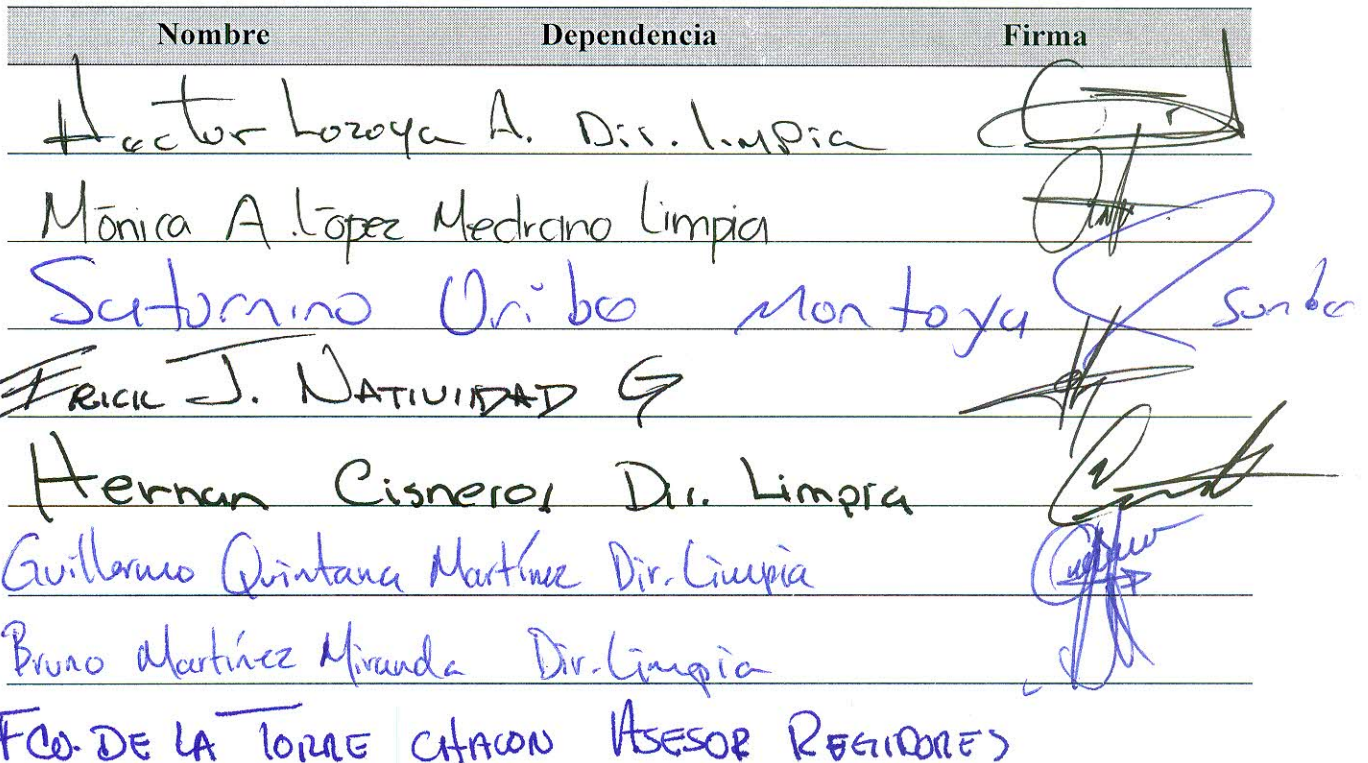 Nombre Dependencia Firma
Hector Lozoya A. Dir. Limpia
Mónica A. López Medrano Limpia
Saturnino Uribe Montoya
Erick J. NATIVIDAD G
Hernan Cisneros Dir. Limpia
Guillermo Quintana Martínez Dir. Limpia
Bruno Martínez Miranda Dir. Limpia
FCO. DE LA TORRE CHACON ASESOR REGIDORES